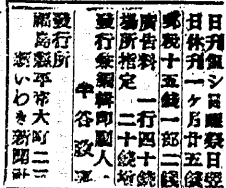 日刊但シ日曜祭日翌
日休刊一ヶ月廿五銭
郵税十五銭一部二銭
広告料 一行四十銭
場所指定 二十銭増
發行兼編輯印刷人
幸谷政
發行所
福島縣平市大町二三
新いわき新聞社